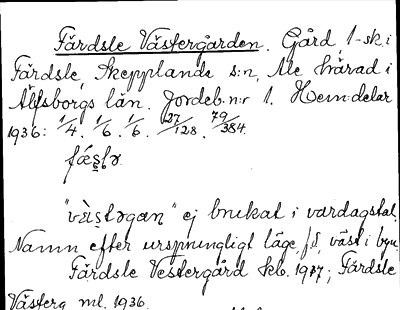 Färdsle Västergården. Gård, 1-sk. i
Färdsle, Skepplanda s:n, Ale härad i
Älfsborgs län. Jordeb. n:r 1. Hem:delar
1936: 1/4. 1/6. 1/6. 27/128. 79/384.
fæs̨lə
"västəgan" ej brukat i vardagstal.
Namn efter ursprungligt läge, f.d. väst i byn.
Färdsle Vestergård kb. 1917; Färdsle
Västerg. ml. 1936.